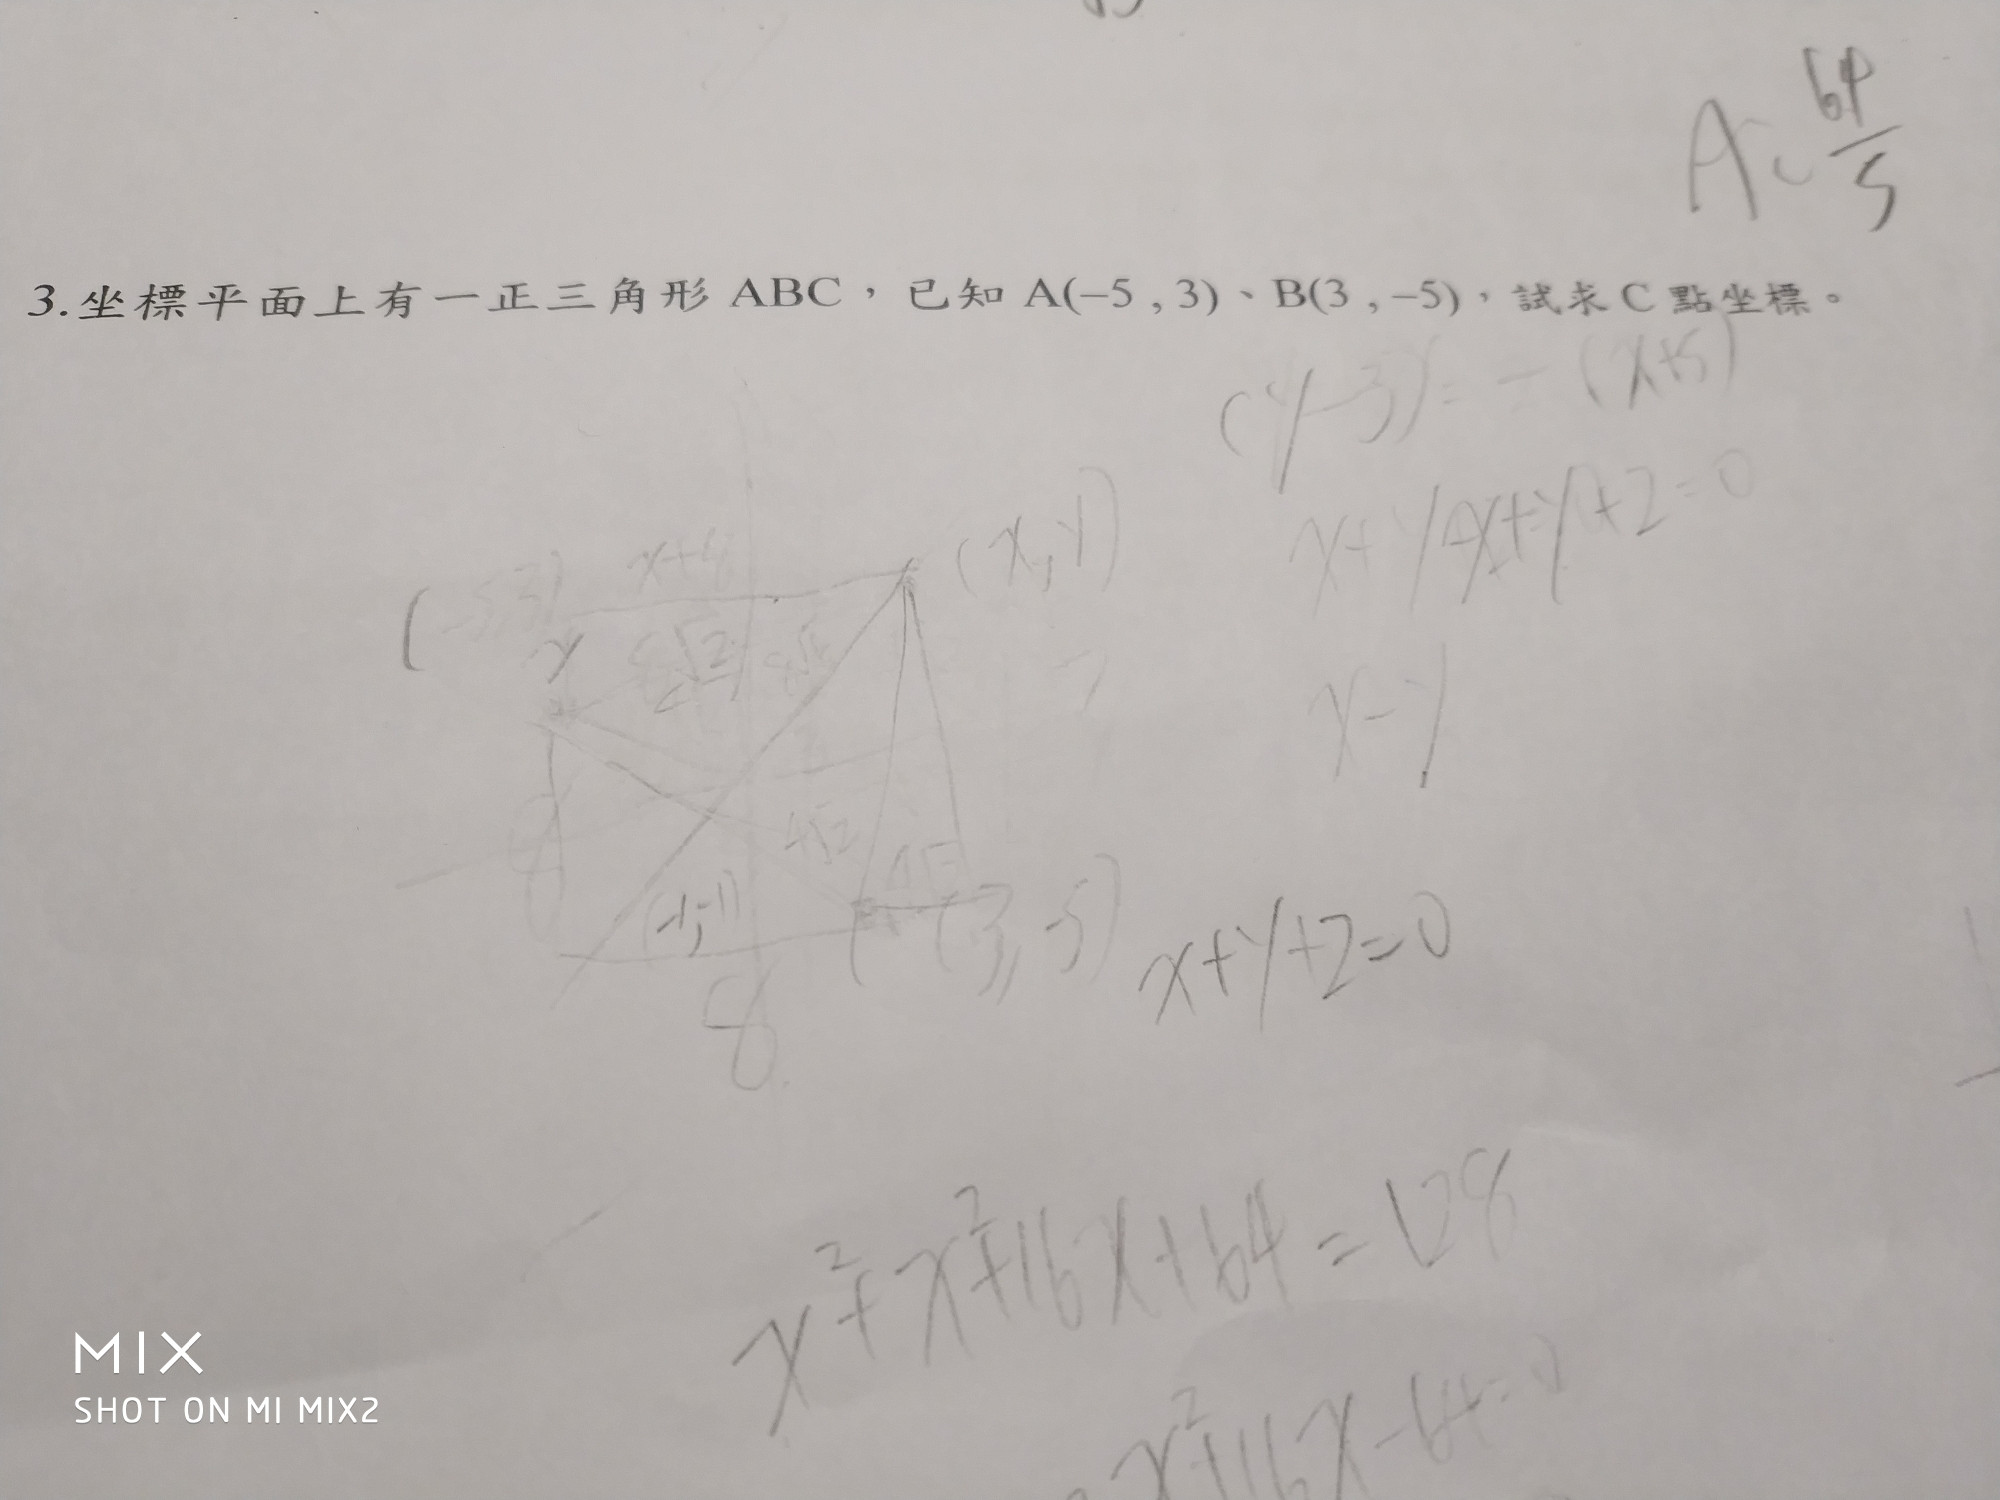 A: 64/5
3.坐標平面上有一正三角形 ABC，已知 A(−5 , 3)、B(3 , −5)，試求 C 點坐標。
(y-3)=-(x+5)
x+y+2=0
(x,y)
(-5,3)
x-y
(-1,-1)
(3,-5)
x+y+2=0
8
x²+x²+16x+64=128
x²+16x-64=0
MIX
SHOT ON MI MIX2